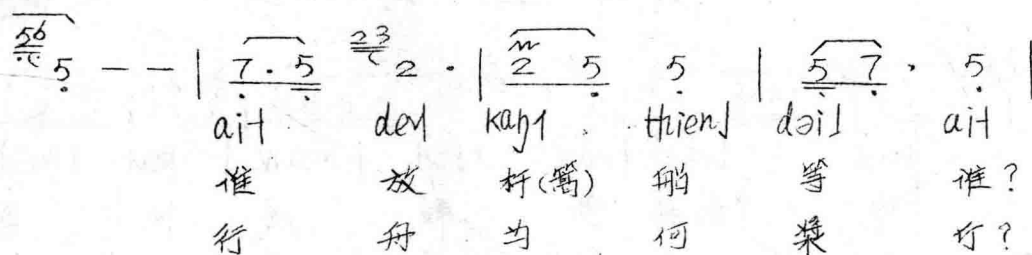 56 5 — — | 7 . 5 23 2 . | 2 5 5 | 5 7 . 5 |
ai˧ den˩ kaŋ˦ thien˩ dəi˩ ai˧
谁 放 杆(篙) 船 等 谁?
行 舟 为 何 桨 行?